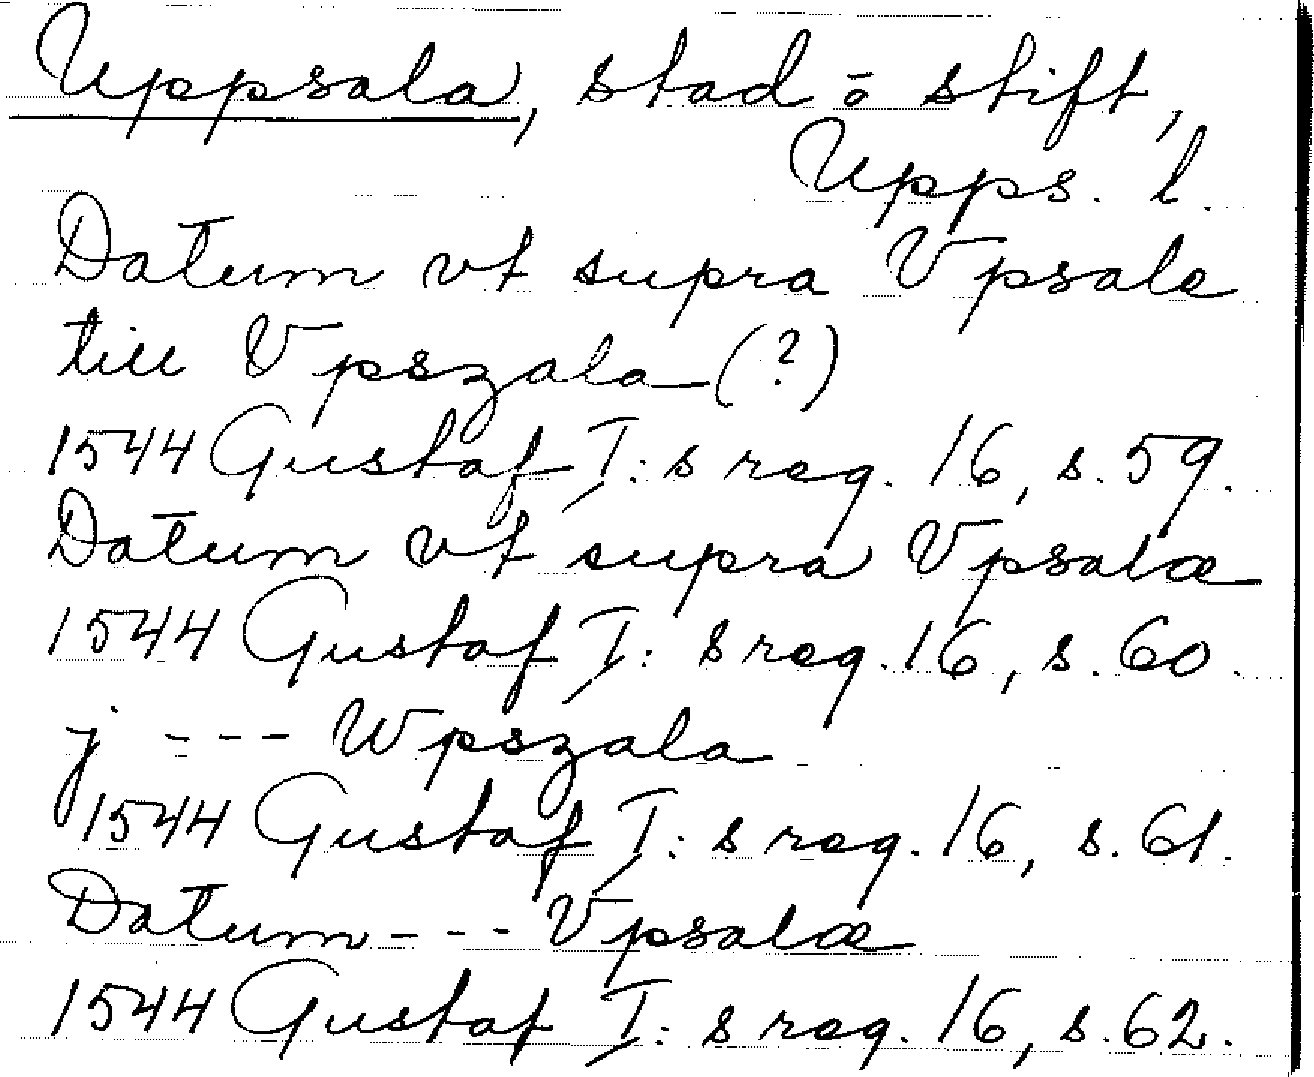 Uppsala, stad o stift,
Upps. l.
Datum vt supra Vpsale
till Vpszala (?)
1544 Gustaf I:s reg. 16, s. 59.
Datum vt supra Vpsalæ
1544 Gustaf I:s reg. 16, s. 60.
j --- Wpszala
1544 Gustaf I:s reg. 16, s. 61.
Datum --- Vpsalæ
1544 Gustaf I:s reg. 16, s. 62.